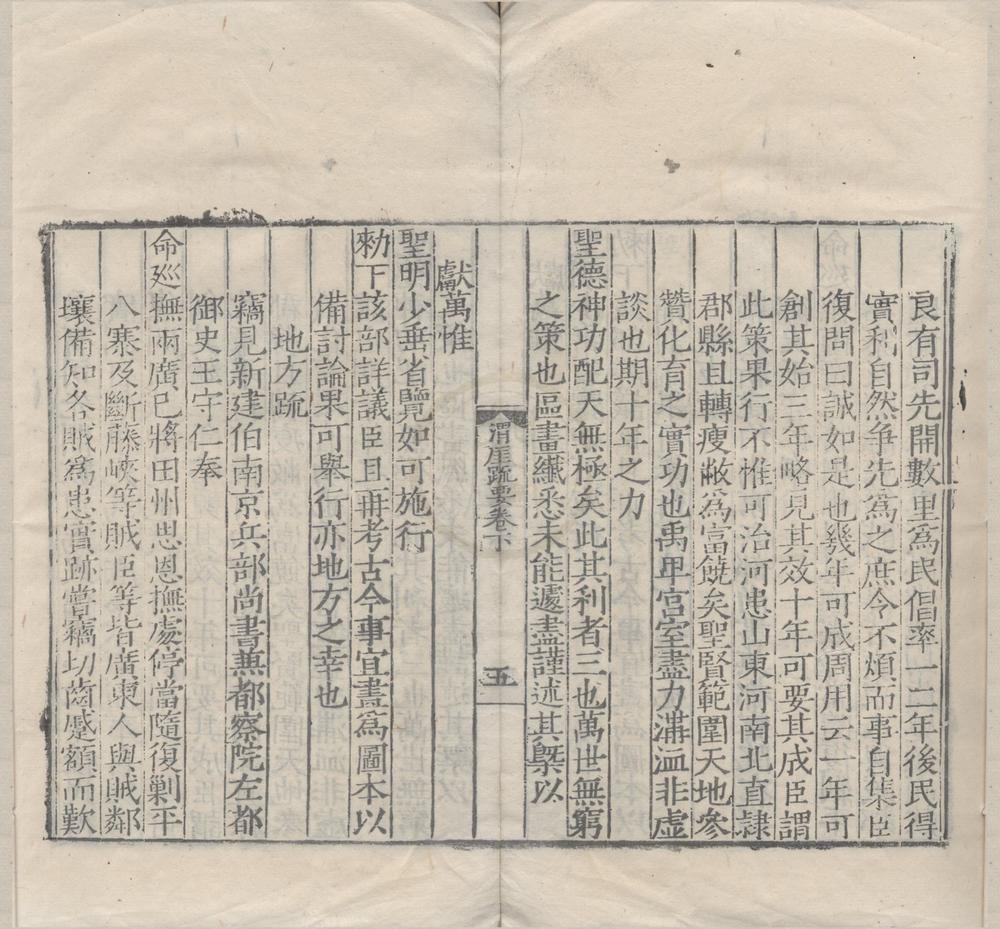 良有司先開數里爲民倡率一二年後民得
實利自然争先爲之庶令不煩而事自集臣
復問曰誠如是也幾年可成周用云一年可
創其始三年略見其效十年可要其成臣謂
此策果行不惟可治河患山東河南北直隷
郡縣且轉瘦敝爲富饒矣聖賢範圍天地叅
贊化育之實功也禹卑宫室盡力溝洫非虚
談也期十年之力
聖德神功配天無極矣此其利者三也萬世無窮
之策也區畫纖悉未能遽盡謹述其槩以
渭厓疏要卷下
五
獻萬惟
聖明少垂省覽如可施行
勑下該部詳議臣且再考古今事宜畫爲圖本以
備討論果可舉行亦地方之幸也
地方疏
竊見新建伯南京兵部尚書兼都察院左都
御史王守仁奉
命廵撫兩廣已將田州思恩撫處停當隨復剿平
八寨及斷藤峽等賊臣等皆廣東人與賊鄰
壤備知各賊爲患實跡嘗竊切齒蹙額而歎